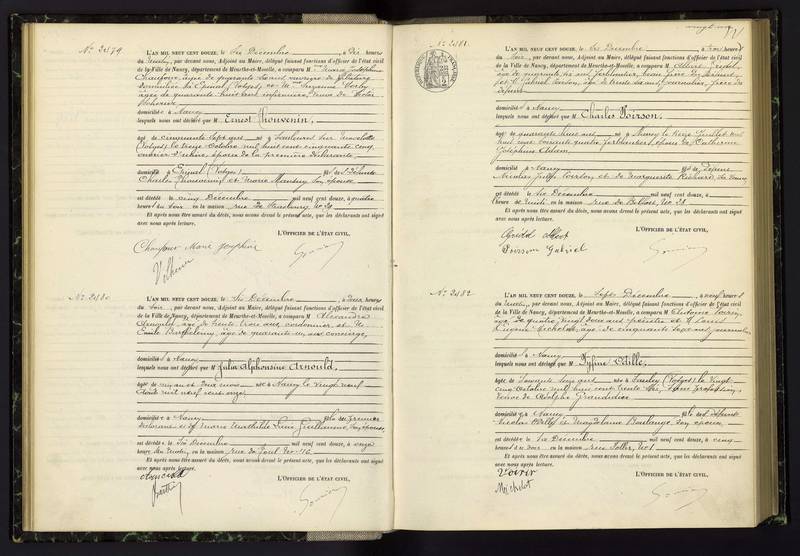 No 2479
L'AN MIL NEUF CENT DOUZE, le Six Décembre, à Dix heures
du matin, par devant nous, Adjoint au Maire, délégué faisant fonctions d'officier de l'état civil
de la Ville de Nancy, département de Meurthe-et-Moselle, a comparu M Marie Joséphine
âgée de quarante
domiciliée à Epinal (Vosges), et M Suzanne
âgée de quarante huit ans, infirmière,
domiciliés à Nancy
lesquels nous ont déclaré que M Ernest Thouvenin,
âgé de cinquante sept ans, né à Saulxures sur Moselotte
(Vosges) le treize Octobre mil huit cent cinquante cinq,
époux de la première déclarante
domicilié à Epinal (Vosges) fils de
Charles Thouvenin et Marie son épouse
est décédé le cinq Décembre mil neuf cent douze, à quatre
heures du soir, en la maison rue de Strasbourg No
Et après nous être assuré du décès, nous avons dressé le présent acte, que les déclarants ont signé
avec nous après lecture.
L'OFFICIER DE L'ÉTAT CIVIL,
Marie Joséphine
No 2480
L'AN MIL NEUF CENT DOUZE, le Six Décembre, à deux heures
du soir, par devant nous, Adjoint au Maire, délégué faisant fonctions d'officier de l'état civil
de la Ville de Nancy, département de Meurthe-et-Moselle, a comparu M Alexandre
Arnould, âgé de trente trois ans, cordonnier, et M
Emile Barthélemy, âgé de quarante un ans, concierge,
domiciliés à Nancy
lesquels nous ont déclaré que M Julia Alphonsine Arnould,
âgée de née à Nancy le vingt neuf
Août mil neuf cent onze
domiciliée à Nancy fille du premier
déclarant et de Marie Mathilde Guillaume, son épouse
est décédée le Six Décembre mil neuf cent douze, à onze
heures du matin, en la maison rue de Toul No 116
Et après nous être assuré du décès, nous avons dressé le présent acte, que les déclarants ont signé
avec nous après lecture.
L'OFFICIER DE L'ÉTAT CIVIL,
Arnould
No 2481
L'AN MIL NEUF CENT DOUZE, le Six Décembre, à trois heures
du soir, par devant nous, Adjoint au Maire, délégué faisant fonctions d'officier de l'état civil
de la Ville de Nancy, département de Meurthe-et-Moselle, a comparu M Albert
âgé de quarante six ans, ferblantier, beau frère du défunt,
et Gabriel Poirson, âgé de trente six ans, journalier, frère du
défunt
domiciliés à Nancy
lesquels nous ont déclaré que M Charles Poirson,
âgé de quarante huit ans, né à Nancy le treize Juillet mil
huit cent soixante quatre, ferblantier, époux de Catherine
Joséphine Adam
domicilié à Nancy fils de défunt
Nicolas Jules Poirson et de Marguerite Richard,
est décédé le Six Décembre mil neuf cent douze, à
heure de midi, en la maison rue de No 28
Et après nous être assuré du décès, nous avons dressé le présent acte, que les déclarants ont signé
avec nous après lecture.
L'OFFICIER DE L'ÉTAT CIVIL,
Poirson Gabriel
No 2482
L'AN MIL NEUF CENT DOUZE, le Sept Décembre, à neuf heures
du matin, par devant nous, Adjoint au Maire, délégué faisant fonctions d'officier de l'état civil
de la Ville de Nancy, département de Meurthe-et-Moselle, a comparu M Antoine Voirin,
âgé de quatre vingt deux ans, et M Louis
Eugène Michelot, âgé de cinquante sept ans, journalier
domiciliés à Nancy
lesquels nous ont déclaré que M
âgée de soixante dix sept ans, née à Saulcy (Vosges) le vingt
cinq Octobre mil huit cent trente cinq, sans profession,
veuve de Adolphe Grandidier
domiciliée à Nancy fille de défunts
Nicolas et Magdelaine Boulange son épouse,
est décédée le Six Décembre mil neuf cent douze, à cinq
heures du soir, en la maison rue No 1
Et après nous être assuré du décès, nous avons dressé le présent acte, que les déclarants ont signé
avec nous après lecture.
L'OFFICIER DE L'ÉTAT CIVIL,
Voirin
Michelot